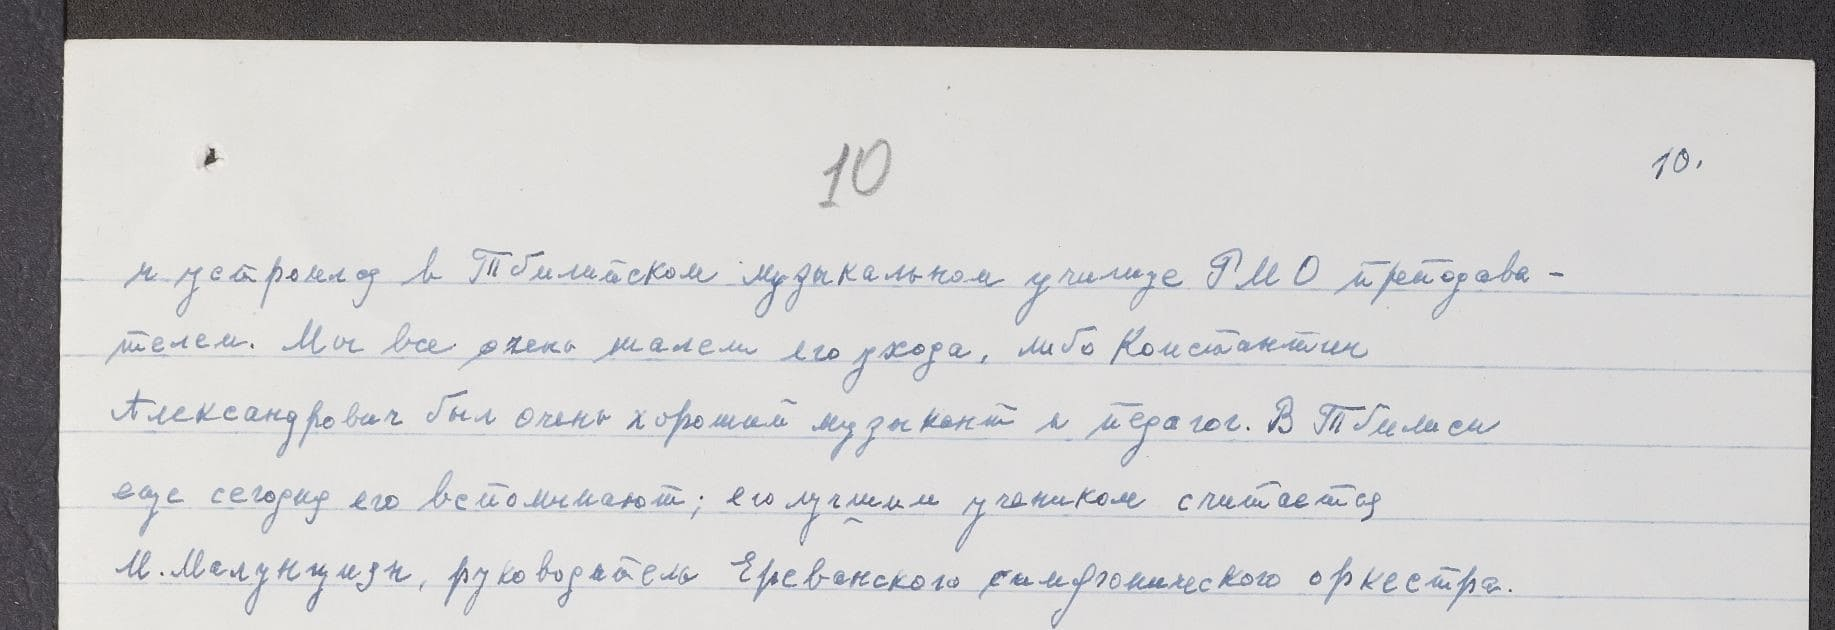 10
10.
и устроился в Тбилисском музыкальном училище РМО преподава-
телем. Мы все очень жалели его ухода, либо Константин
Александрович был очень хороший музыкант и педагог. В Тбилиси
еще сегодня его вспоминают; его лучшим учеником считается
М. Малунцян, руководитель Ереванского симфонического оркестра.